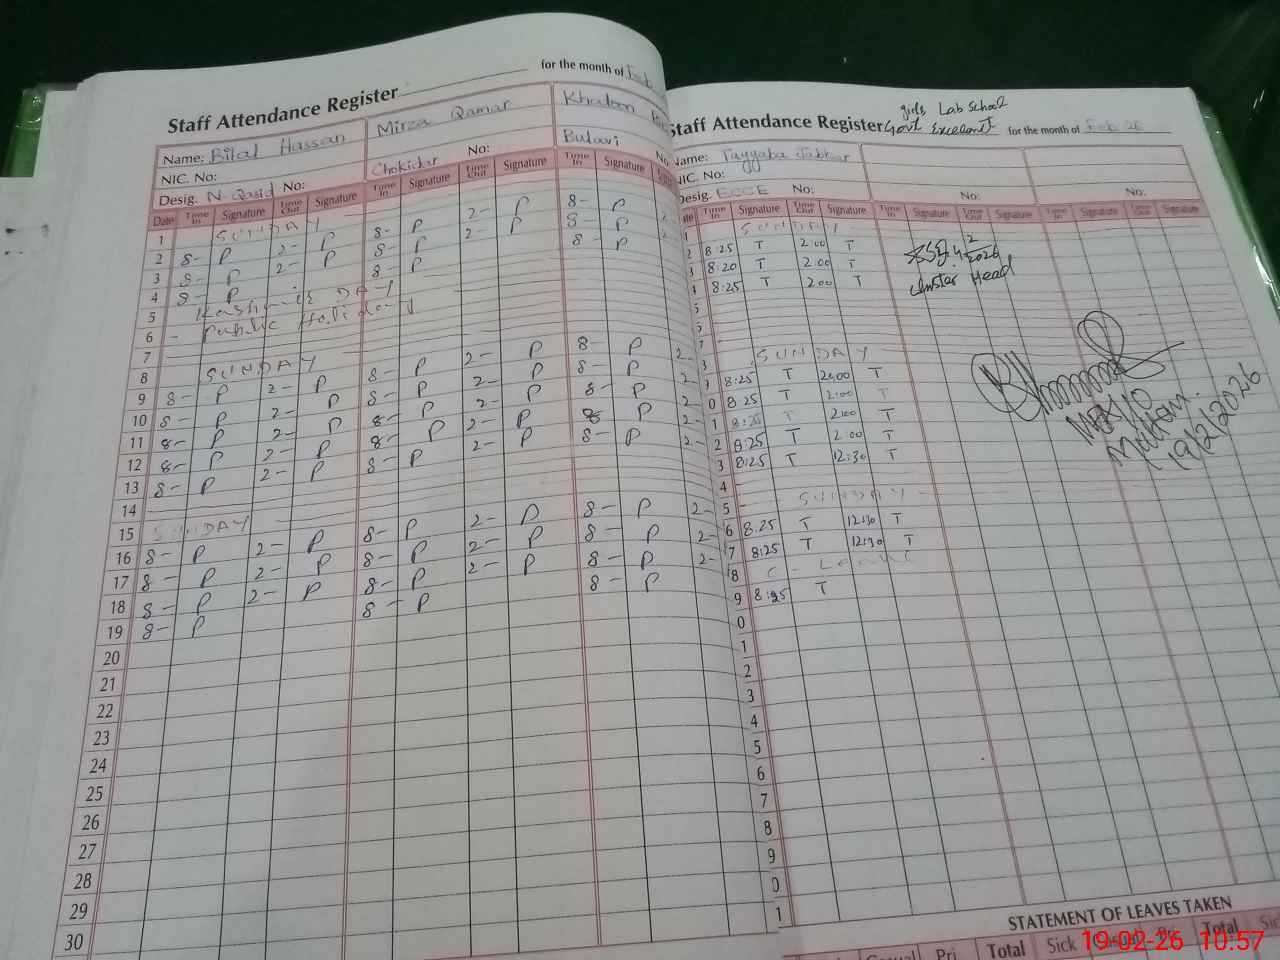 Staff Attendance Register
for the month of Feb
Name: Bilal Hassan
Mirza Qamar
Khatoon
NIC. No:
Desig. N-Qasid No:
Chokidar No:
Butavi No
Date Time In Signature Time Out Signature Time In Signature Time Out Signature Time In Signature
1 SUNDAY
2 8- P 2- P 8- P 2- P 8- P 2-
3 8- P 2- P 8- P 2- P 8- P 2-
4 8- P 8- P 8- P
5 Kashmir DAY
6 - Public Holiday
7
8 SUNDAY
9 8- P 2- P 8- P 2- P 8- P 2-
10 8- P 2- P 8- P 2- P 8- P 2-
11 8- P 2- P 8- P 2- P 8- P 2-
12 8- P 2- P 8- P 2- P 8- P 2-
13 8- P 2- P 8- P 2- P 8- P 2-
14
15 SUNDAY
16 8- P 2- P 8- P 2- P 8- P 2-
17 8- P 2- P 8- P 2- P 8- P 2-
18 8- P 2- P 8- P 2- P 8- P 2-
19 8- P 8- P 8- P
20
21
22
23
24
25
26
27
28
29
30
girls Lab School
Staff Attendance Register Govt for the month of Feb 26
Name: Tayyaba Jabbar
NIC. No:
Desig. ECCE No:
No:
No:
Time In Signature Time Out Signature Time In Signature Time Out Signature Time In Signature Time Out Signature
1 SUNDAY
2 8:25 T 2:00 T
3 8:20 T 2:00 T
4 8:25 T 2:00 T
2026
Cluster Head
5
6
7
8 SUNDAY
9 8:25 T 2:00 T
0 8:25 T 2:00 T
1 8:25 T 2:00 T
2 8:25 T 2:00 T
3 8:25 T 12:30 T
4
5 - SUNDAY -
6 8:25 T 12:30 T
7 8:25 T 12:30 T
8 C - Leave
9 8:25 T
0
1
2
3
4
5
6
7
8
9
0
1
Multan.
19/2/2026
STATEMENT OF LEAVES TAKEN
Casual Pri Total Sick Casual Pri Total Sick
19-02-26 10:57